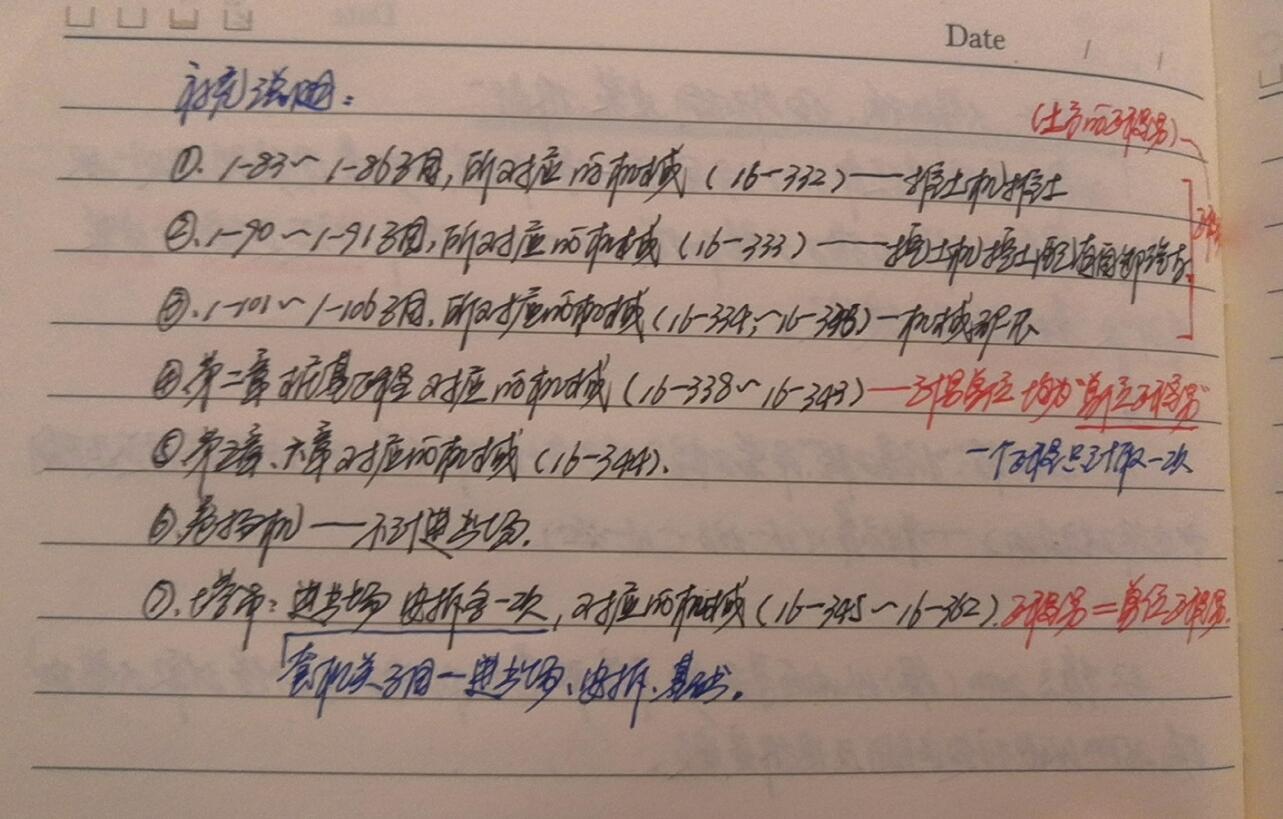 Date / /
补充说明:
(土方的工程量)
①. 1-83~1-86子目, 所对应的机械 (16-332) — 推土机推土
②. 1-90~1-91子目, 所对应的机械 (16-333) — 挖土机挖土
③. 1-101~1-106子目, 所对应的机械 (16-334~16-) — 机械
④. 第二章 工程 对应的机械 (16-338~16-343) — 工程单位均为"单位工程"
⑤. 第三章、六章对应的机械 (16-344). 一个工程只计取一次
⑥. 卷扬机 — 不计进出场.
⑦. 塔吊: 进出场 安拆各一次, 对应的机械 (16-345~16-362). 工程量=单位工程量.
子目 — 进出场、安拆、基础.